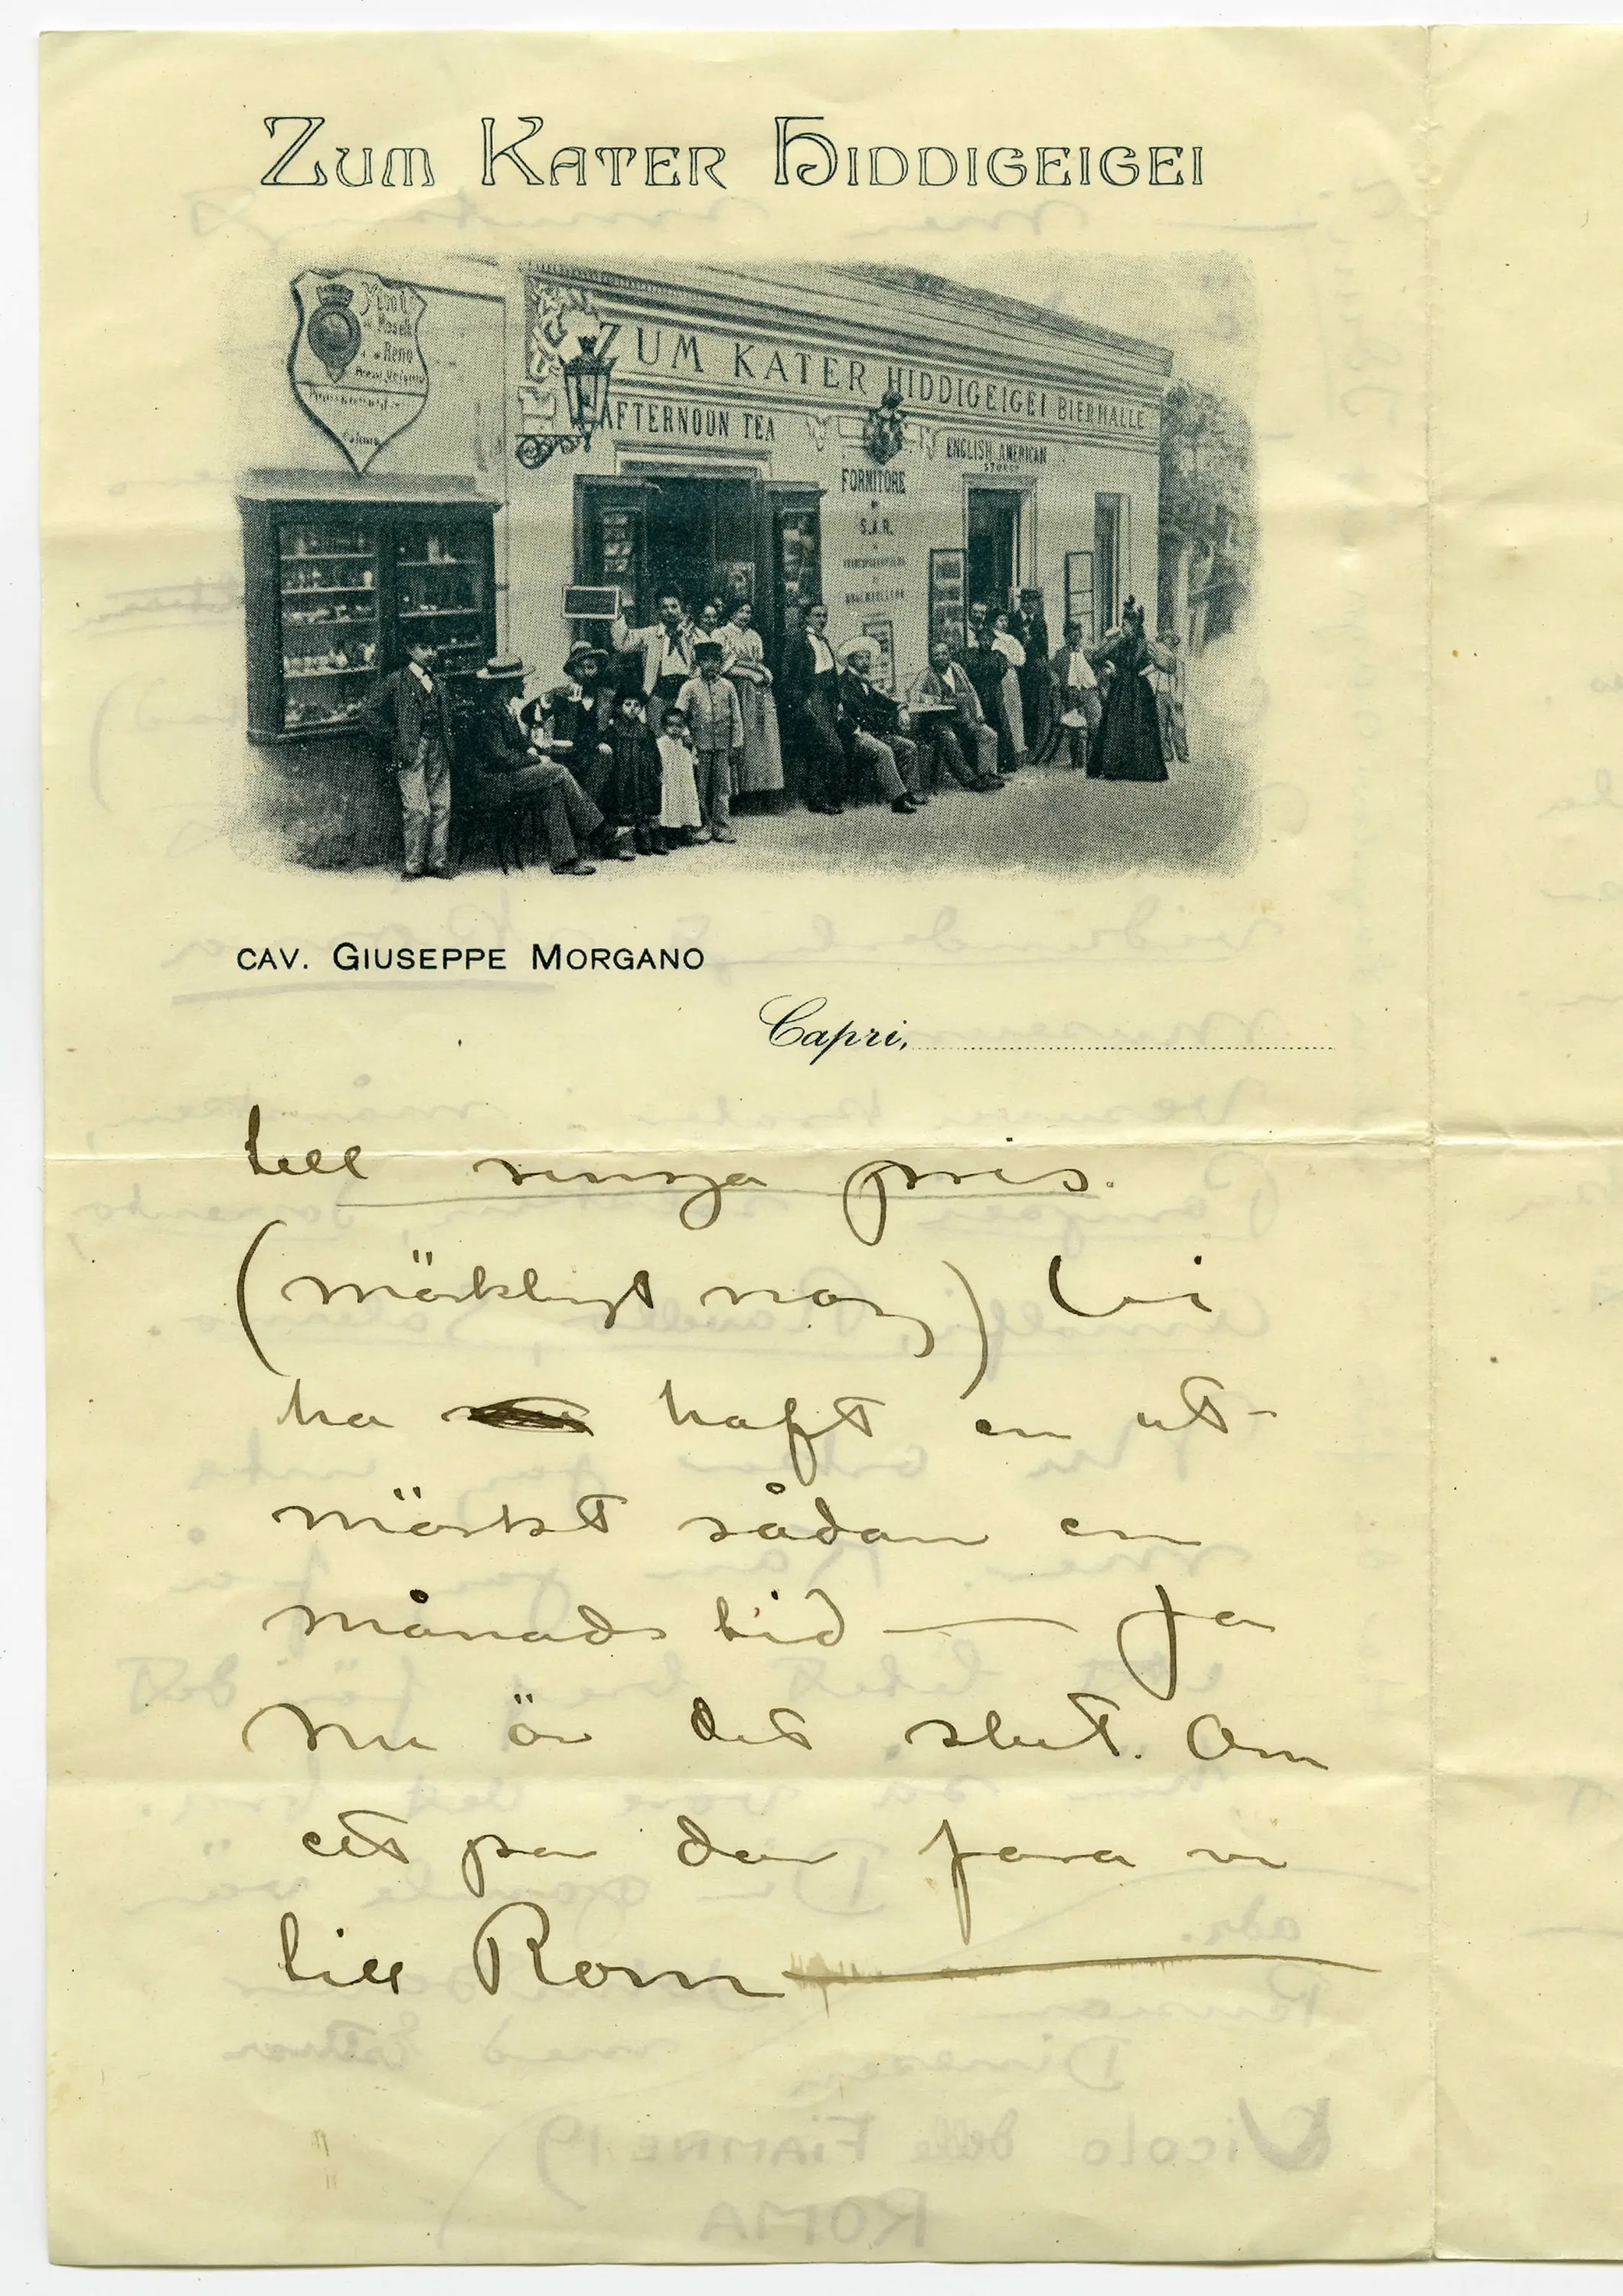 ZUM KATER HIDDIGEIGEI
ZUM KATER HIDDIGEIGEI BIERHALLE
AFTERNOON TEA
ENGLISH AMERICAN
STORES
FORNITORE
S.A.R.
Reno
CAV. GIUSEPPE MORGANO
Capri,
till runga pris.
(märkligt nog) Vi
ha haft en ut-
märkt sådan en
månads tid — Ja
nu är det slut. Om
ett par dar fara vi
till Rom —